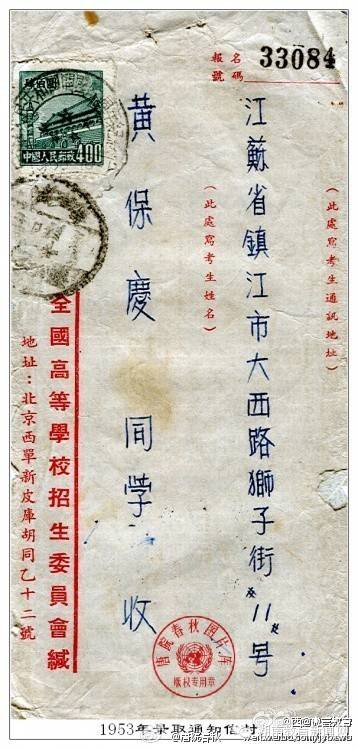 報名
號碼
33084
(此處寫考生通訊地址)
江蘇省鎮江市大西路獅子街11号
(此處寫考生姓名)
黄保慶 同学 收
中國人民郵政400
全國高等學校招生委員會緘
地址：北京西單新皮庫胡同乙十二號
唐院春秋图片库
版权专用章
1953年录取通知信封